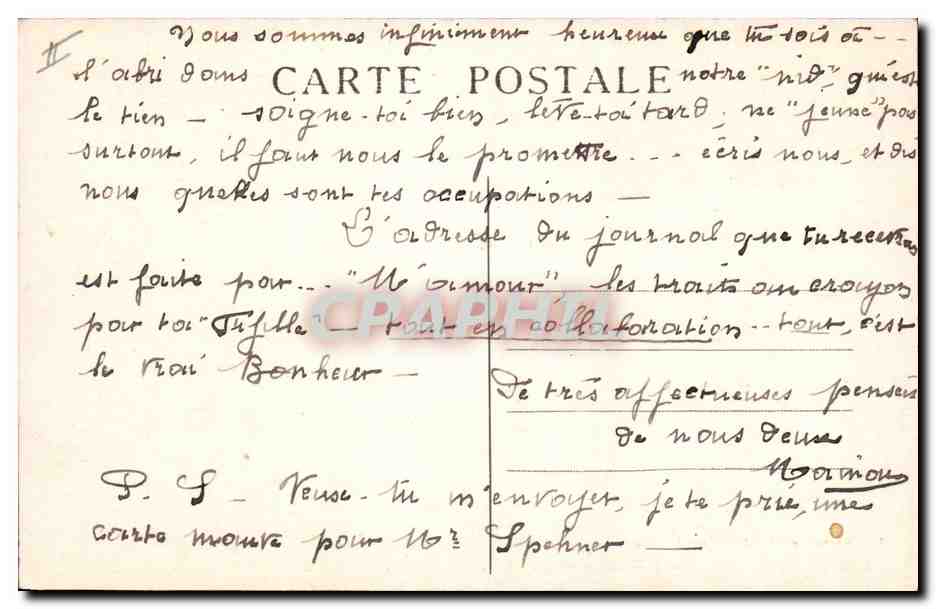 II
Nous sommes infiniment heureux que tu sois à --
l'abri dans CARTE POSTALE notre "nid", qui est
le tien - soigne-toi bien, lève-toi tard, ne "jeune" pas
surtout, il faut nous le promettre ... écris nous, et dis
nous quelles sont tes occupations -
L'adresse du journal que tu recevras
est faite par... "M'amour" les traits au crayon
par ta "Tifille" - tout en collaboration -- tout, c'est
le vrai Bonheur -
De très affectueuses pensées
de nous deux
P. S - Veux-tu m'envoyer, je te prie, une
carte pour Mr Spehner -
CPAPHIL